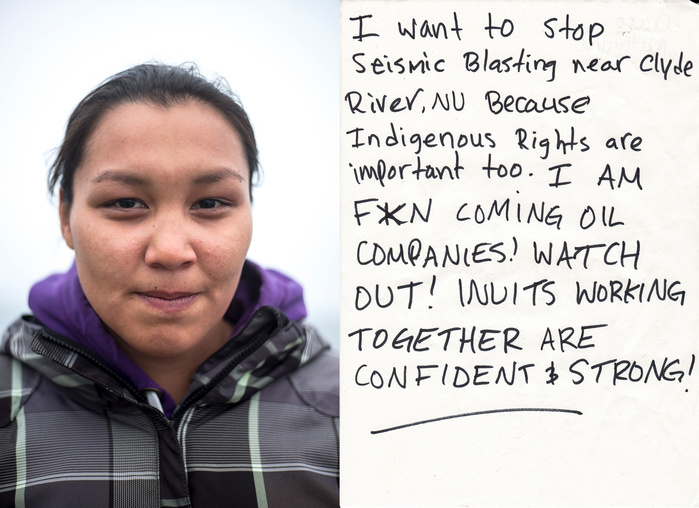 I want to stop
Seismic Blasting near Clyde
River, NU Because
Indigenous Rights are
important too. I AM
F*KN COMING OIL
COMPANIES! WATCH
OUT! INUITS WORKING
TOGETHER ARE
CONFIDENT & STRONG!